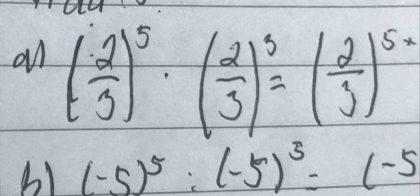 a) (2/3)^5 · (2/3)^3 = (2/3)^5+
b) (-5)^5 : (-5)^3 = (-5